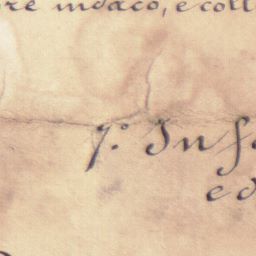 re indaco, e coll
7.° Inf
ed